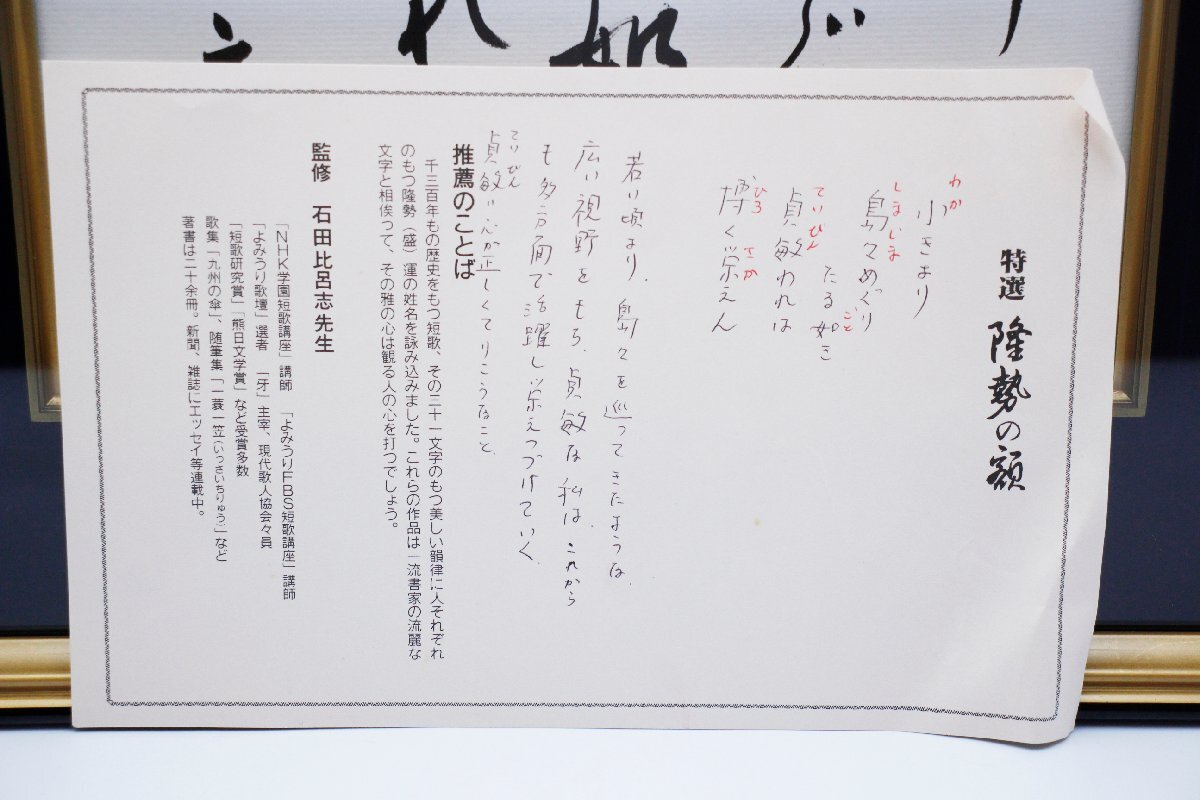 特選 隆勢の額
小きより
わか
島々めぐり
しまじま
たる如き
ごと
貞敏われは
ていびん
博く栄えん
ひろ さか
若い頃より、島々を巡ってきたような、
広い視野をもち、貞敏な私は、これから
も多方面で活躍し栄えつづけていく。
貞敏=心が正しくてりこうなこと。
ていびん
推薦のことば
千三百年もの歴史をもつ短歌、その三十一文字のもつ美しい韻律に人それぞれ
のもつ隆勢（盛）運の姓名を詠み込みました。これらの作品は一流書家の流麗な
文字と相俟って、その雅の心は観る人の心を打つでしょう。
監修 石田比呂志先生
「NHK学園短歌講座」講師 「よみうりFBS短歌講座」講師
「よみうり歌壇」選者 「牙」主宰、現代歌人協会々員
「短歌研究賞」「熊日文学賞」など受賞多数
歌集「九州の傘」、随筆集「一蓑一笠（いっさいちりゅう）」など
著書は二十余冊。新聞、雑誌にエッセイ等連載中。